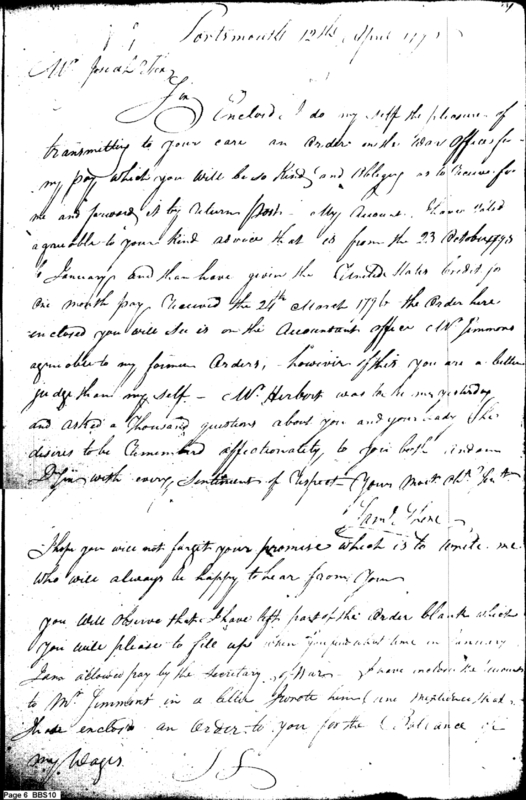 Portsmouth 12th April 179
Mr Joseph
Sir
Enclosed I do my self the pleasure of
transmitting to your care an Order on the War Office for
my pay which you will be so Kind and Obliging as to Receive for
me and forward it by Return Post. My Account I have
agreeable to your Kind advice that is from the 23 October 1795
January and then have given the United States Credit for
One month pay Received the 24th March 1796 the Order here
enclosed you will see is on the Accountants office Mr Simmons
agreeable to my former Orders, however of this you are a better
judge than my self - Mr Herbert was to see me yesterday
and asked a thousand questions about you and your Lady She
desires to be Remember'd affectionately to you both and
with every Sentiment of respect Your Most Obt Servt
Saml
I hope you will not forget your promise which is to write me
who will always be happy to hear from You
you will Observe that I have left part of the Order blank which
you will please to fill up when you find what time in January
I am allowed pay by the Secretary of War. I have inclosed the
to Mr Simmons in a letter I wrote him
I have enclosed an Order to you for the Ballance of
my Wages.
Page 6 BBS10